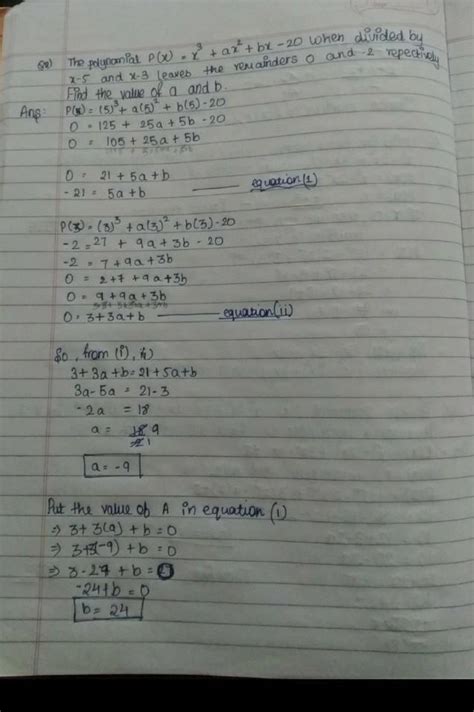 Q8) The polynomial P(x) = x³ + ax² + bx - 20 when divided by
x-5 and x-3 leaves the remainders 0 and -2 repectively
Find the value of a and b.
Ans: P(x) = (5)³ + a(5)² + b(5) - 20
0 = 125 + 25a + 5b - 20
0 = 105 + 25a + 5b
0 = 21 + 5a + b
-21 = 5a + b equation(1)
P(x) = (3)³ + a(3)² + b(3) - 20
-2 = 27 + 9a + 3b - 20
-2 = 7 + 9a + 3b
0 = 2+7 + 9a + 3b
0 = 9 + 9a + 3b
0 = 3 + 3a + b equation(ii)
So, from (i),
3 + 3a + b = 21 + 5a + b
3a - 5a = 21 - 3
-2a = 18
a = 18 9
a = -9
Put the value of A in equation (i)
⇒ 3 + 3(a) + b = 0
⇒ 3+3(-9) + b = 0
⇒ 3 - 27 + b =
-24 + b = 0
b = 24